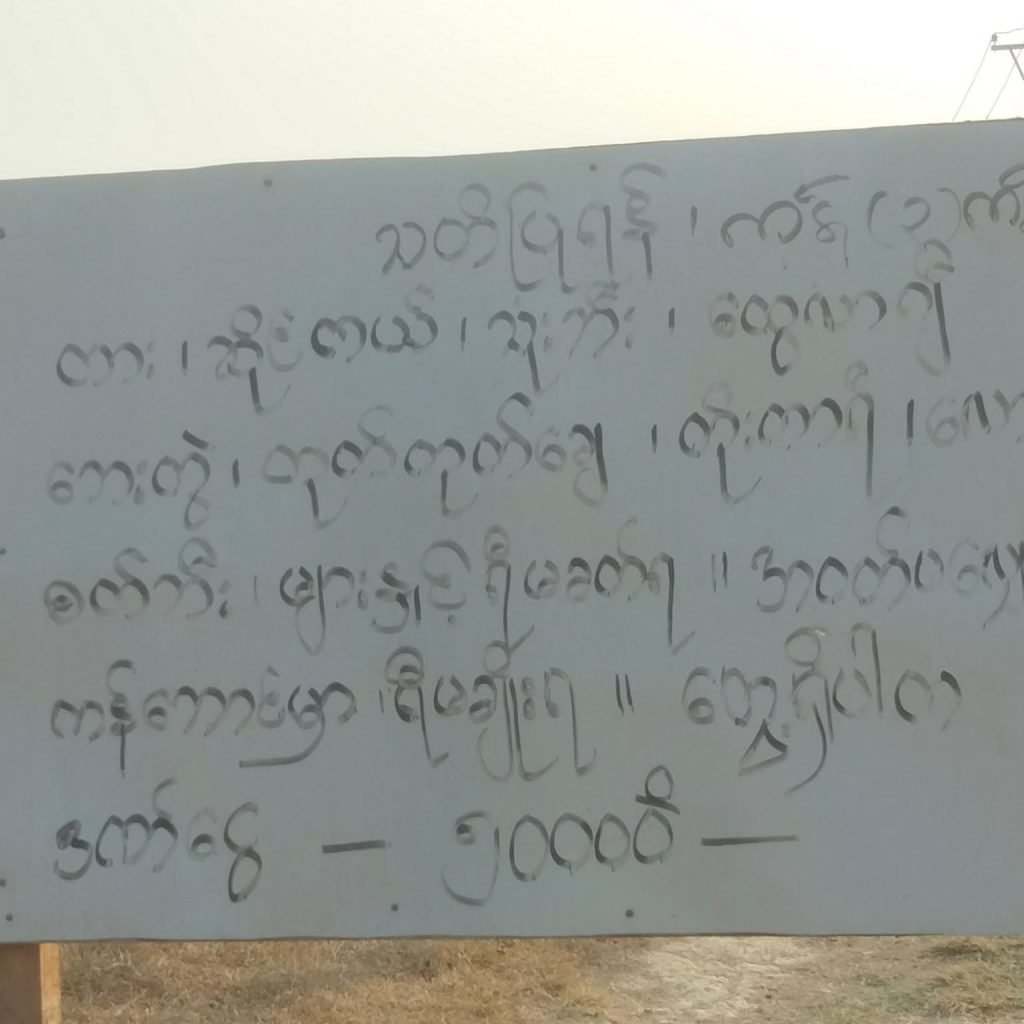 သတိပြုရန်၊ ကန် (၁) ကို
ကား၊ ဆိုင်ကယ်၊ သုံးဘီး၊ ထွေလာဂျီ
ဘေးတွဲ၊ ထုတ်ထုတ်ချေ၊ တိုးကာရီ၊
စက်ဘီး၊ များနှင့် ရေမခတ်ရ။ အဝတ်မလျှော်
ကန်ဘောင်မှာ ရေမချိုးရ။ တွေ့ရှိပါက
ဒဏ်ငွေ — ၅၀၀၀ဝိ —